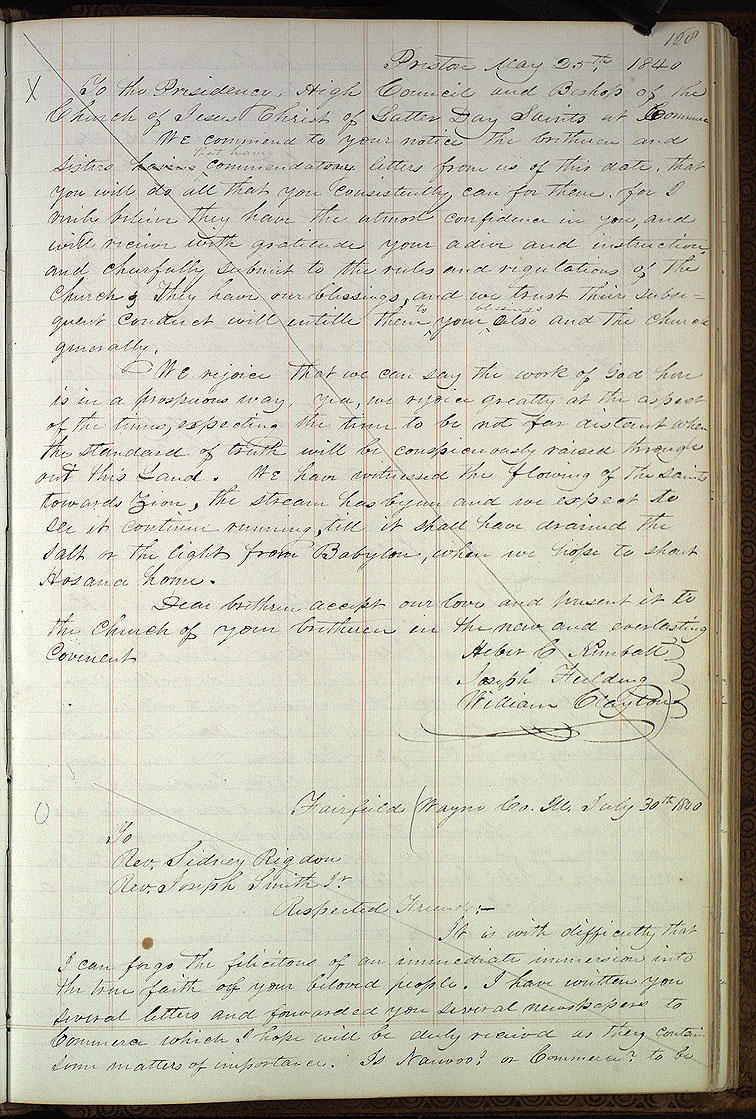 128
Preston May 25th, 1840
X
To the Presidency, High Council and Bishop of the
Church of Jesus Christ of Latter Day Saints at Commerce
We commend to your notice the brethren and
that have
sisters having commendatory letters from us of this date, that
you will do all that you consistently can for them. for I
verily believe they have the utmost confidence in you, and
will receive with gratitude your advice and instruction,
and cheerfully submit to the rules and regulations of the
Church & They have our blessings, and we trust their subse-
to blessings
quent conduct will entitle them your also and the church
generally.
We rejoice that we can say the work of God here
is in a prosperous way. Yea, we rejoice greatly at the aspect
of the times, expecting the time to be not far distant when
the standard of truth will be conspicuously raised through
out this Land. We have witnessed the flowing of the saints
towards Zion, the stream has begun and we expect to
see it continue running, till it shall have drained the
salt or the light from Babylon, when we hope to shout
Hosana home.
Dear brethren accept our love and present it to
the Church of your brethren in the new and everlasting
Covenent
Heber C Kimball
Joseph Fielding
William Clayton
Fairfield (Wayne Co. Ill. July 30th 1840
O
To
Rev. Sidney Rigdon
Rev. Joseph Smith Jr
Respected Friends:-
It is with difficulty that
I can forgo the felicitous of an immediate immersion into
the true faith of your beloved people. I have written you
several letters and forwarded you several newspapers to
Commerce which I hope will be duly recieved as they contain
some matters of importance. Is Nauvoo? or Commerce? to be